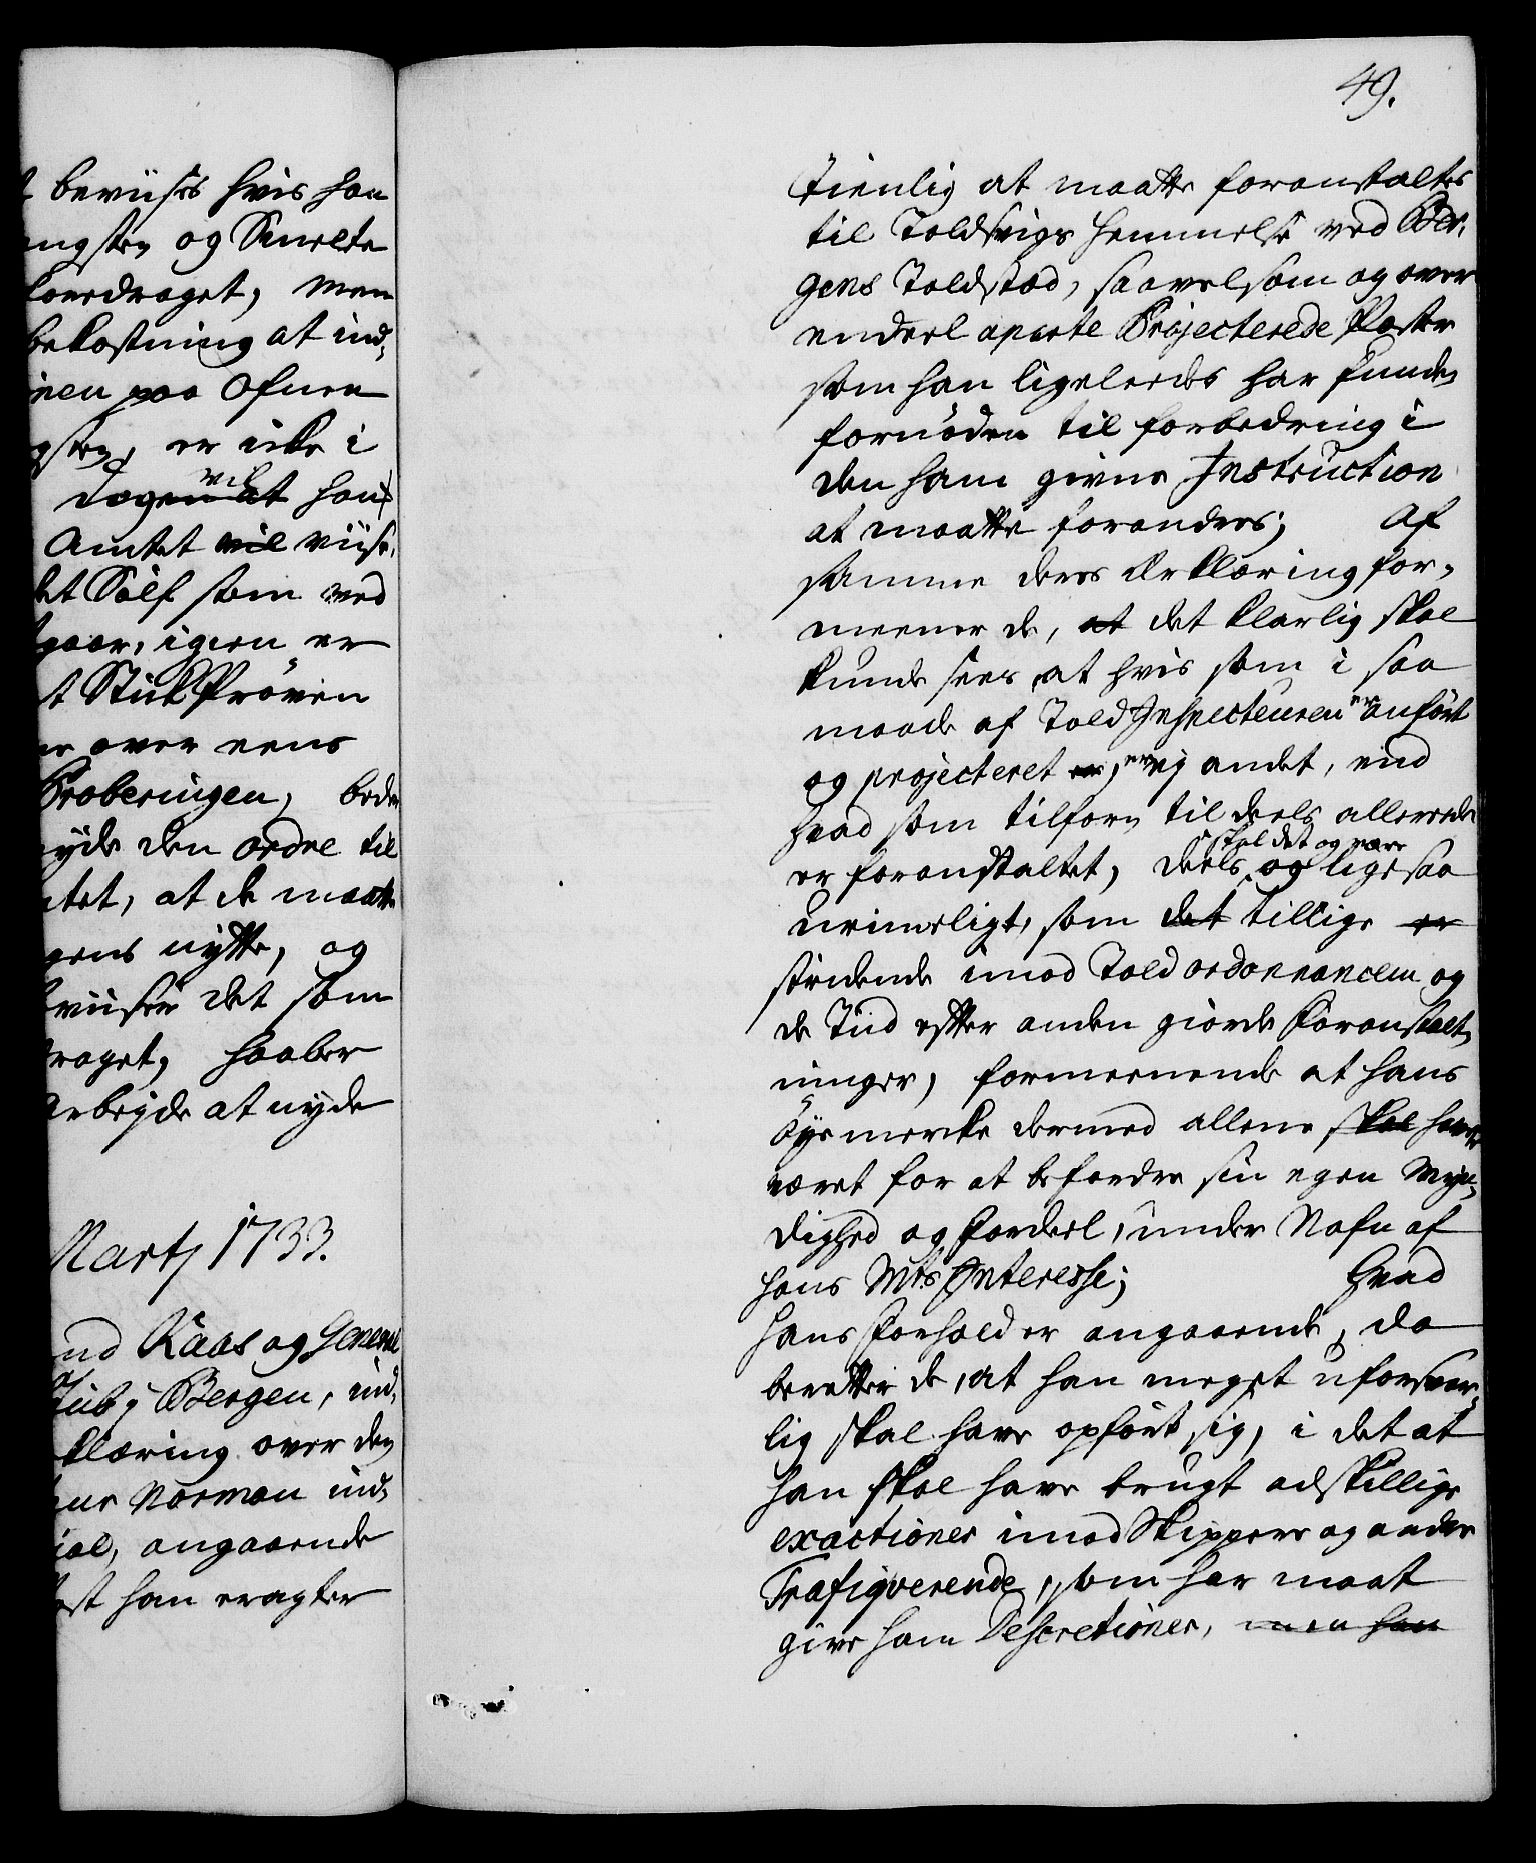 t beviises hvis han
ngsten og Smelte
foredraget, Men
bekostning at ind-
nen paa Ofnen
gsten, er icke i
dogen at vil han
Amtet vil viise,
et Sølf som ved
gaar, igien er
t StukPrøven
er over eens
Proberingen, bede
nyde den ordre til
tet, at de maatte
gens nytte, og
viiser det som
raget, haaber
Arbejde at nyde
Martj 1733.
nd Kaas og General
Juby i Bergen, ind-
klæring over den
eur Norman ind-
ial, angaaende
st han eragter
49.
tienlig at maatte foranstaltes
til Toldsvigs hemmelse ved Ber-
gens Toldstad, saavelsom og over
endeel aparte Projecterede Poster
som han ligeleedes har funden
fornøden til forbedring i
den ham givne Instruction
at maatte forandres; Af
samme deres Erklæring for-
meener de, at det klarlig skal
kunde sees, at hvis som i saa
maade af Told Inspecteuren er anført
og projecteret er, er ej andet, end
hvad som tilforn til deels allereede
skal det og være
er foranstaltet, deels og ligesaa
urimeligt, som det tillige er
stridende imod Told ordonnancen og
de Tiid efter anden giorde Foranstalt-
ninger, formeenende at hans
Øyemercke dermed allene skal have
været for at befordre sin egen Myn-
dighed og Fordeel, under Nafn af
hans Mts Interesse; Hvad
hans Forhold er angaaende, da
beretter de, at han meget uforsvar-
lig skal have opført sig, i det at
han skal have brugt adskillige
exactioner imod Skippere og andre
Trafiqverende, som har maat
give ham Discretioner, men han